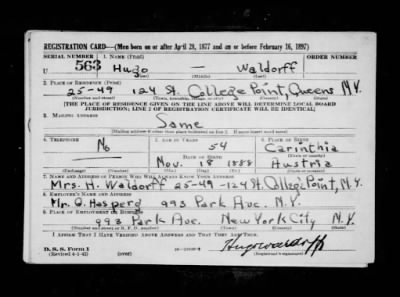 REGISTRATION CARD—(Men born on or after April 28, 1877 and on or before February 16, 1897)
SERIAL NUMBER 1. NAME (Print) ORDER NUMBER
U 563 Hugo — Waldorff
(First) (Middle) (Last)
2. PLACE OF RESIDENCE (Print)
25-49 124 St. College Point, Queens N.Y.
(Number and street) (Town, township, village, or city) (County) (State)
[THE PLACE OF RESIDENCE GIVEN ON THE LINE ABOVE WILL DETERMINE LOCAL BOARD
JURISDICTION; LINE 2 OF REGISTRATION CERTIFICATE WILL BE IDENTICAL]
3. MAILING ADDRESS
Same
[Mailing address if other than place indicated on line 2. If same insert word same]
4. TELEPHONE 5. AGE IN YEARS 6. PLACE OF BIRTH
No 54 Carinthia
DATE OF BIRTH (Town or county)
Nov. 18 1888 Austria
(Mo.) (Day) (Yr.) (State or country)
7. NAME AND ADDRESS OF PERSON WHO WILL ALWAYS KNOW YOUR ADDRESS
Mrs. H. Waldorff 25-49-124 St. College Point, N.Y.
8. EMPLOYER'S NAME AND ADDRESS
Mr. O. Hasperg 993 Park Ave. N.Y.
9. PLACE OF EMPLOYMENT OR BUSINESS
993 Park Ave. New York City N.Y.
(Number and street or R. F. D. number) (Town) (County) (State)
I AFFIRM THAT I HAVE VERIFIED ABOVE ANSWERS AND THAT THEY ARE TRUE.
D. S. S. Form 1
(Revised 4-1-42) (over)
Hugo Waldorff
(Registrant's signature)